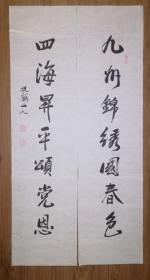 九州錦绣國春色
四海昇平頌党恩
山人